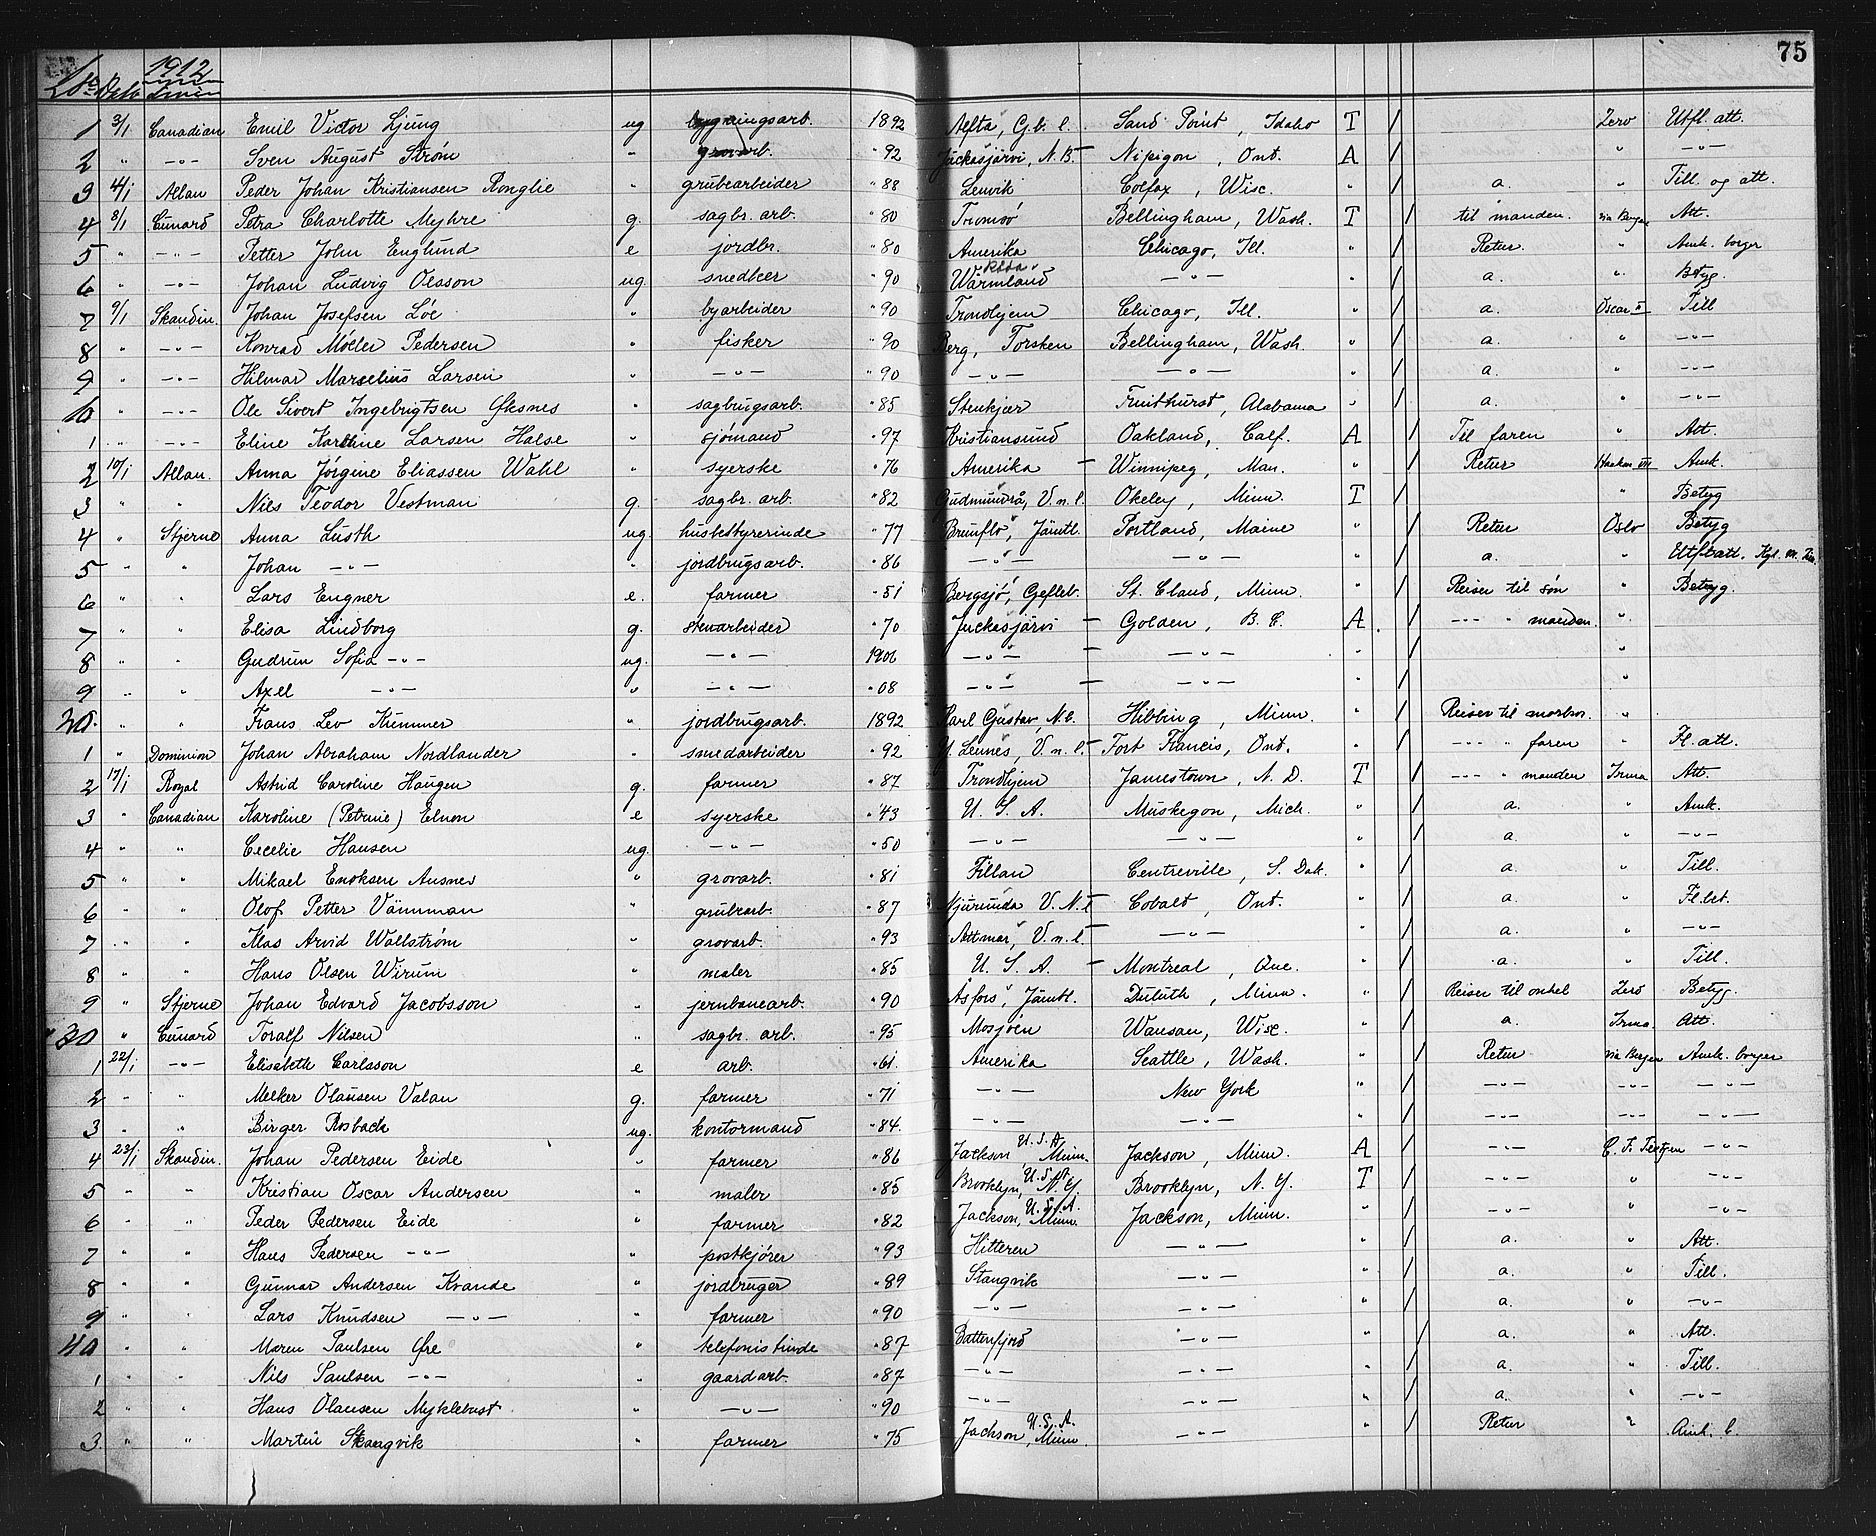 75
1912
No Dato Linie
1 3/1 Canadian Emil Victor Ljung ug bygningsarb. 1892 Alfta, G.b. l. Sand Point, Idaho T / Zero Utfl. att.
2 " -"- Sven August Strøm " grovarb. " 92 Juckasjärvi, N.B. Nipigon, Ont. A / " -"-
3 4/1 Allan Peder Johan Kristiansen Ronglie " grubearbeider " 88 Lenvik Colfax, Wisc. " / a. " Till. og att.
4 8/1 Cunard Petra Charlotte Myhre g. sagbr. arb. " 80 Tromsö Bellingham, Wash. T / til manden. via Bergen Att.
5 " -"- Petter John Englund e jordbr. " 80 Amerika Chicago, Ill. " / Retur. " Amk. borger
6 " -"- Johan Ludvig Olsson ug. snedker " 90 Wärmland -"- " / a. " Betyg.
7 9/1 Skandin. Johan Josefsen Löe " byarbeider " 90 Trondhjem Chicago, Ill. " / a. Oscar II Till
8 " -"- Konrad Möller Pedersen " fisker " 90 Berg, Torsken Bellingham, Wash. " / a. " -"-
9 " -"- Hilmar Marselius Larsen " -"- " 90 -"- -"- " / a. " -"-
10 " -"- Ole Sivert Ingebrigtsen Øksnes " sagbrugsarb. " 85 Stenkjær Fruithurst, Alabama " / a. " -"-
1 " -"- Eline Karoline Larsen Halse " sjømand " 97 Kristiansund Oakland, Calf. A / Til faren " Att.
2 10/1 Allan. Anna Jörgine Eliassen Wahl " syerske " 76 Amerika - Winnipeg, Man. " / Retur Haakon VII Amk.
3 " " Nils Teodor Vestman g. sagbr. arb. " 82 Gudmundrå, V.n.l. Okeley, Minn T / " Betyg
4 " Stjerne Anna Lusth ug. husbestyrerinde " 77 Brunflo, Jämtl. Portland, Maine " / Retur Oslo Betyg
5 " " Johan -"- " jordbrugsarb. " 86 -"- -"- " / a. " Utfl. att.
6 " " Lars Engner e. farmer " 51 Bergsjö, Gefleb. St. Cloud, Minn. " / Reiser til søn " Betyg.
7 " " Elisa Lindborg g. stenarbeider " 70 Juckasjärvi - Golden, B.C. A. / -"- " manden. "
8 " " Gudrun Sofia -"- ug. -"- 1906 -"- - -"- " / "
9 " " Axel -"- " -"- " 08 -"- - -"- " / "
20. " " Frans Lev Kummer " jordbrugsarb. 1892 Karl Gustav, N.b. Hibbing, Minn. " / Reiser til morbror. "
1 " Dominion Johan Abraham Nordlander " smedarbeider " 92 Fort Francis, Ont. " / -"- " faren " Fl. att.
2 17/1 Royal Astrid Caroline Haugen g. farmer " 87 Trondhjem Jamestown, N.D. T / -"- " manden Irma Att.
3 " Canadian Karoline (Petrine) Elnon e syerske " 43 U.S.A. Muskegon, Mich. " / a. " Amk.
4 " " Cecelie Hansen ug. -"- " 50 -"- -"- " / a. " -"-
5 " " Mikael Enoksen Ausnes " grovarb. " 81 Fillan Centreville, S. Dak. " / a. " Till.
6 " " Olof Petter Vänman " grubearb. " 87 Njurunda V.N.l Cobalt, Ont. " / a. "
7 " " Klas Arvid Wallström " grovarb. " 93 Attmar, V.n.l. -"- " / a. " -"-
8 " " Hans Olsen Wirum " maler " 85 U.S.A. - Montreal, Que. " / a. " Till.
9 " Stjerne Johan Edvard Jacobsson " jernbanearb. " 90 Åsfors, Jämtl. Duluth, Minn. " / Reiser til onkel Zero Betyg.
30 " Cunard Toralf Nilsen " sagbr. arb. " 95 Mosjöen Wausau, Wisc. " / a. Irma. Att.
1 22/1 -"- Elisabeth Carlsson e arb. " 61. Amerika Seattle, Wash. " / Retur via Bergen Amk. borger
2 " " Melker Olausen Valan g. farmer " 71 -"- New York " / -"- -"- -"-
3 " " Birger Rosbach ug. kontormand " 84. -"- " / -"- -"- -"-
4 23/1 Skandin. Johan Pedersen Eide " farmer " 86 Jackson, U.S.A. Minn. Jackson, Minn. A / -"- C. F. Tietgen -"-
5 " " Kristian Oscar Andersen " maler " 85 Brooklyn, U.S.A. N.Y. Brooklyn, N.Y. T / -"- " -"-
6 " " Peder Pedersen Eide " farmer " 82 Jackson, U.S.A. Minn. Jackson, Minn. " / -"- " -"-
7 " " Hans Pedersen -"- " postkjører " 93 Hitteren -"- " / a. " Att.
8 " " Gunnar Andersen Kvande " jordbruger " 89 Stangvik -"- " / a. " Till.
9 " " Lars Knudsen -"- " farmer " 90 -"- -"- " / a. " -"-
40 " " Maren Paulsen Øre " telefonistinde " 87 Battenfjord -"- " / a. " Att.
1 " " Nils Paulsen -"- " gaardarb. " 87 -"- -"- " / a. " Till.
2 " " Hans Olausen Myklebust " -"- " 90 -"- -"- " / a. " -"-
3 " " Martin Skangvik " farmer " 75 Jackson, U.S.A. Minn. -"- " / Retur " Amk. b